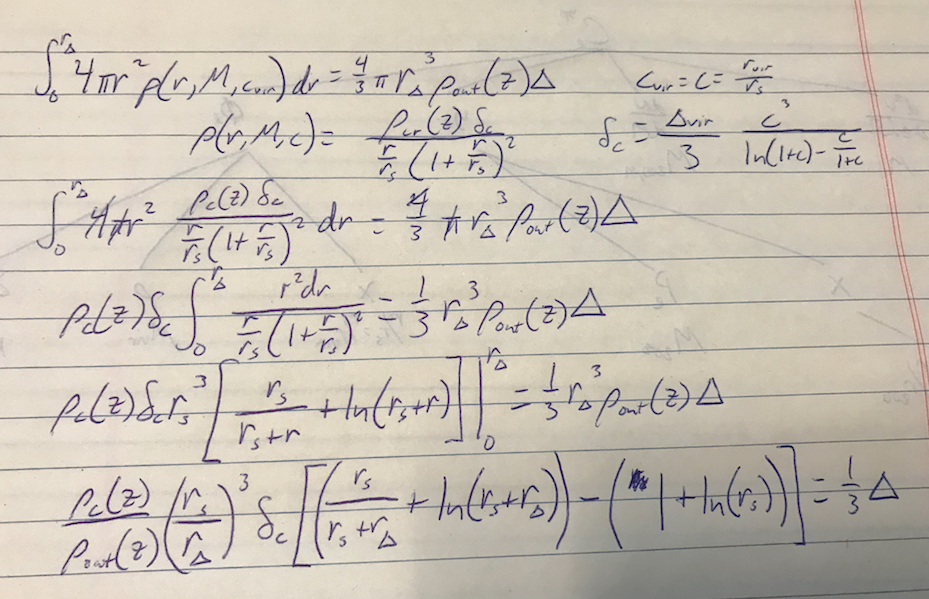 ∫₀^{r_Δ} 4πr² ρ(r, M, c_vir) dr = 4/3 π r_Δ³ ρ_out(z) Δ    c_vir = c = r_vir/r_s
ρ(r, M, c) = ρ_cr(z) δ_c / [r/r_s (1 + r/r_s)²]    δ_c = Δ_vir/3 c³/[ln(1+c) - c/(1+c)]
∫₀^{r_Δ} 4πr² ρ_c(z) δ_c / [r/r_s (1 + r/r_s)²] dr = 4/3 π r_Δ³ ρ_out(z) Δ
ρ_c(z) δ_c ∫₀^{r_Δ} r² dr / [r/r_s (1 + r/r_s)²] = 1/3 r_Δ³ ρ_out(z) Δ
ρ_c(z) δ_c r_s³ [r_s/(r_s + r) + ln(r_s + r)] |₀^{r_Δ} = 1/3 r_Δ³ ρ_out(z) Δ
ρ_c(z)/ρ_out(z) (r_s/r_Δ)³ δ_c [(r_s/(r_s + r_Δ) + ln(r_s + r_Δ)) - (1 + ln(r_s))] = 1/3 Δ